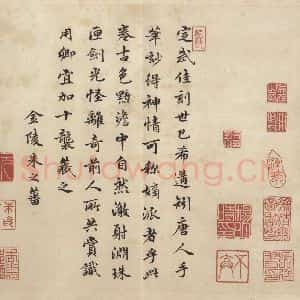 定武佳刻世已希遘矧唐人手
筆妙得神情可称嫡派者乎此
卷古色黯澹中自然激射淵珠
匣劍光怪離奇前人所共賞識
用卿宜加十襲藏之
金陵朱之蕃
Shufawang.cn